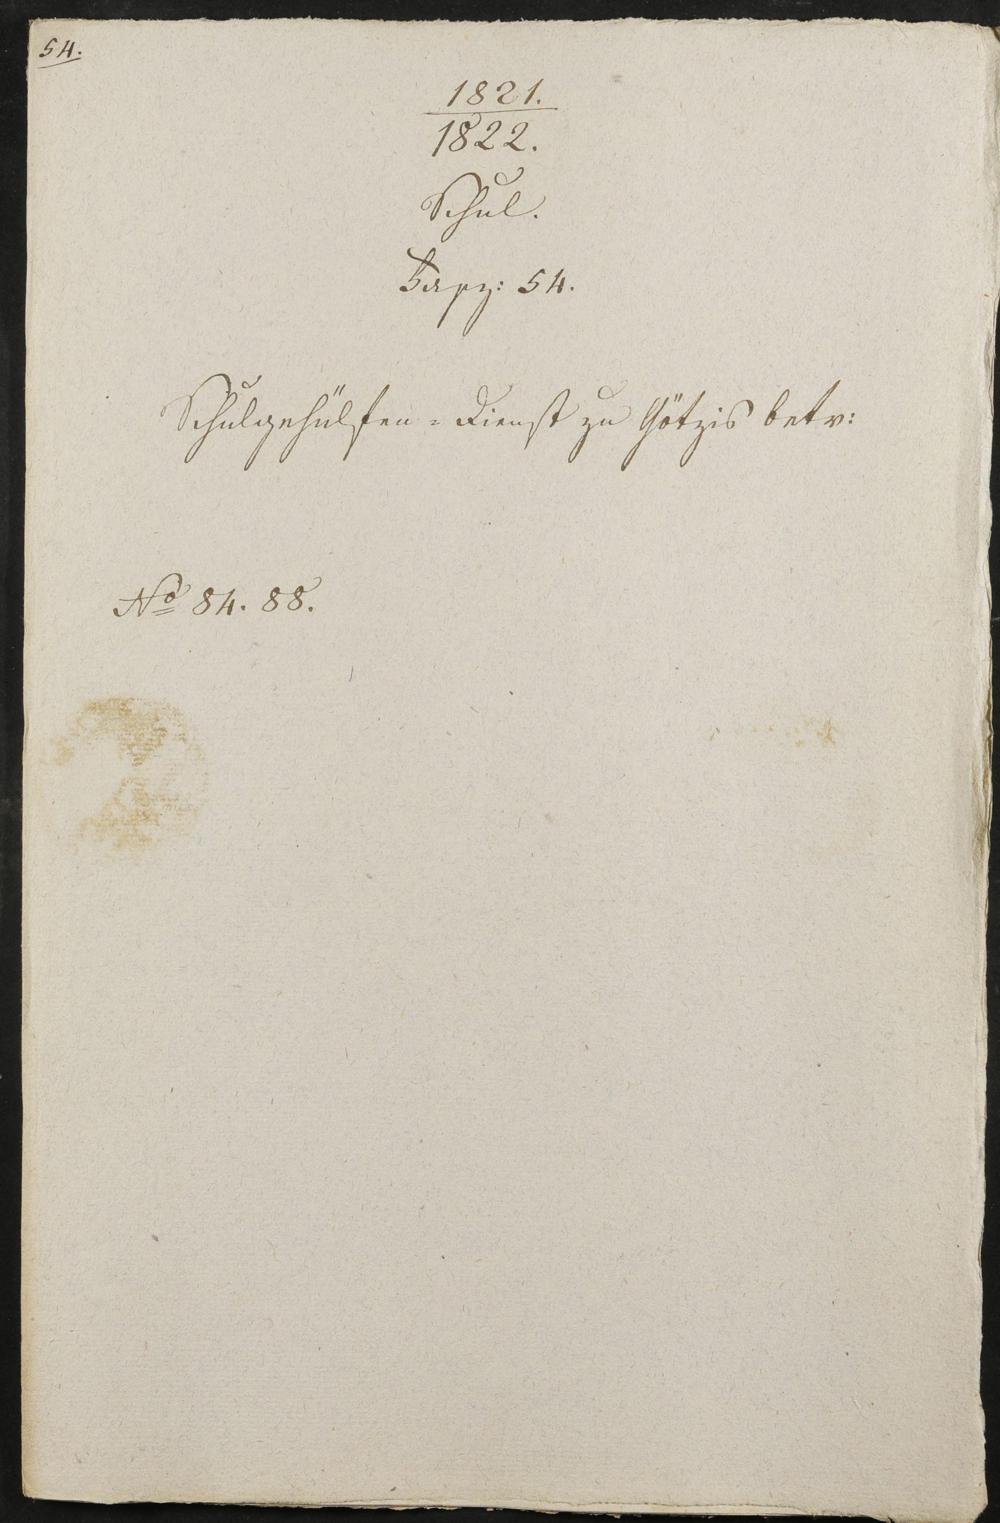 54.
1821.
1822.
Schul.
Fasz: 54.
Schulgehülfen = Dienst zu Götzis betr:
No 84. 88.